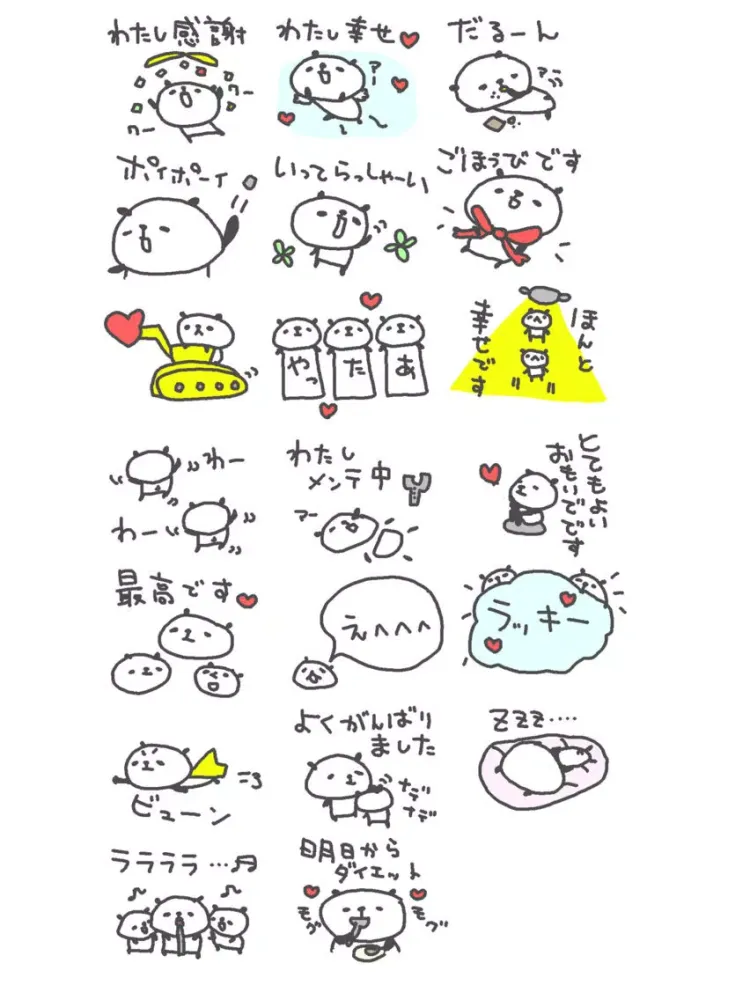 わたし感謝
ワー
ワー
わたし幸せ
アー
だるーん
ポイポーイ
いってらっしゃーい
ごほうびです
やっ
た
あ
ほんと
幸せです
わー
わー
わたし
メンテ中
アー
とてもよい
おもいでです
最高です
えへへへ
ラッキー
ビューン
よくがんばり
ました
ナデ
ナデ
ZZZ....
ララララ...♫
明日から
ダイエット
モグ
モグ